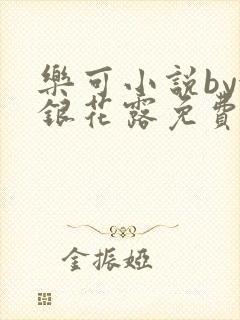 樂可小說by
銀花露免費
金振婭